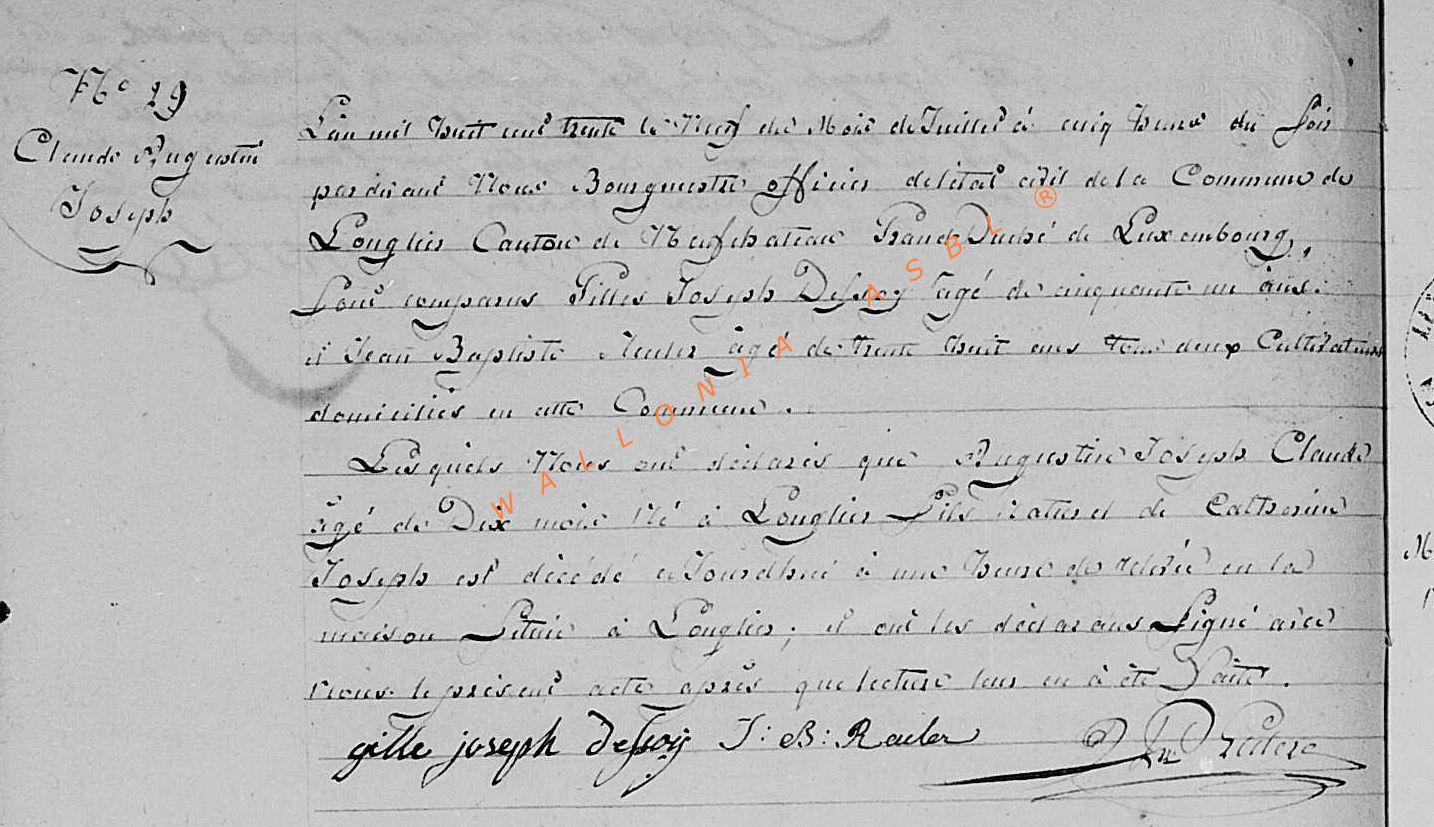 No 29
Claude Augustin
Joseph
L'an mil huit cent trente le Neuf du Mois de Juillet à cinq heures du soir
pardevant Nous Bourgmestre officier de l'état civil de la Commune de
Longlier Canton de Neufchateau Grand Duché de Luxembourg,
sont comparus Gilles Joseph Defroy âgé de cinquante un ans.
et Jean Baptiste âgé de trente huit ans tous deux Cultivateurs
domiciliés en cette Commune.
Lesquels Nous ont déclarés que Augustin Joseph Claude
âgé de Dix mois Né à Longlier fils naturel de Catherine
Joseph est décédé à une heure de relevée en la
maison située à Longlier; et ont les déclarans signé avec
nous le présent acte après que lecture leur en à été faite.
gille joseph J: B:
WALLONIA ASBL ®